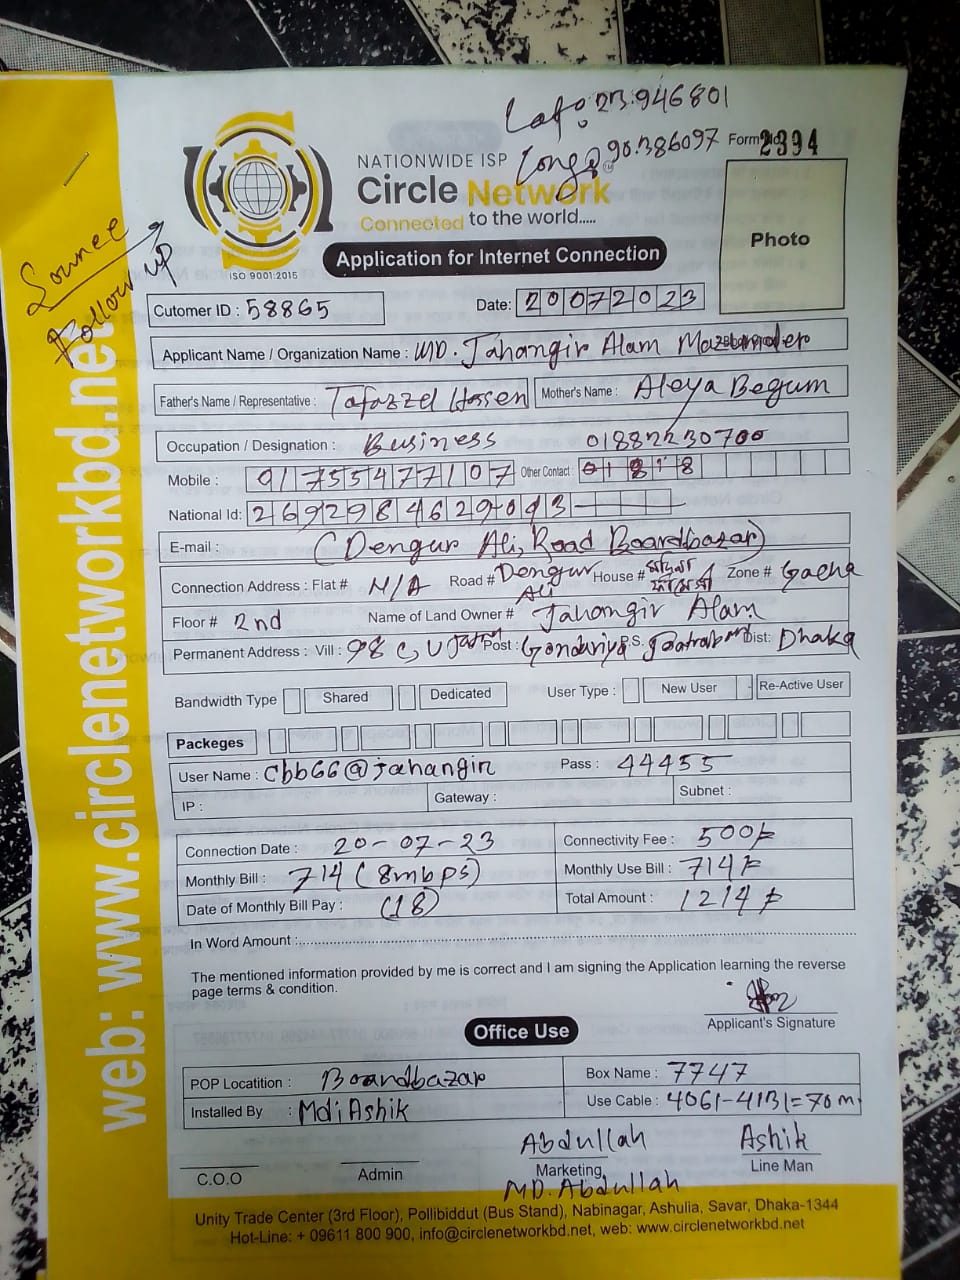 Lat: 23.946801
Long: 90.386097
Form No. 2394
NATIONWIDE ISP
Circle Network
Connected to the world.....
ISO 9001:2015
Application for Internet Connection
Photo
Sounce
Follow up
Cutomer ID : 58865
Date: 20072023
Applicant Name / Organization Name : MD. Jahangir Alam Mazumder
Father's Name / Representative : Tafazzel Hossen Mother's Name : Aleya Begum
Occupation / Designation : Business 01882230700
Mobile : 01755477107 Other Contact : 01818
National Id: 2692984629043
E-mail : (Dengur Ali, Road Boardbazar)
Connection Address : Flat # N/A Road # Dengur Ali House # Zone # Gacha
Floor # 2nd Name of Land Owner # Jahangir Alam
Permanent Address : Vill : 98 C, U Post : Gandariya P.S. Dist: Dhaka
Bandwidth Type Shared Dedicated User Type : New User Re-Active User
Packeges
User Name : cbb66@jahangir Pass : 44455
IP : Gateway : Subnet :
Connection Date : 20-07-23 Connectivity Fee : 500/-
Monthly Bill : 714 (8mbps) Monthly Use Bill : 714/-
Date of Monthly Bill Pay : (18) Total Amount : 1214/-
In Word Amount :
The mentioned information provided by me is correct and I am signing the Application learning the reverse
page terms & condition.
Applicant's Signature
Office Use
POP Locatition : Boardbazar Box Name : 7747
Installed By : Md: Ashik Use Cable : 4061-4131=70 m
Abdullah Ashik
C.O.O Admin Marketing Line Man
MD. Abdullah
Unity Trade Center (3rd Floor), Pollibiddut (Bus Stand), Nabinagar, Ashulia, Savar, Dhaka-1344
Hot-Line: + 09611 800 900, info@circlenetworkbd.net, web: www.circlenetworkbd.net
web: www.circlenetworkbd.net